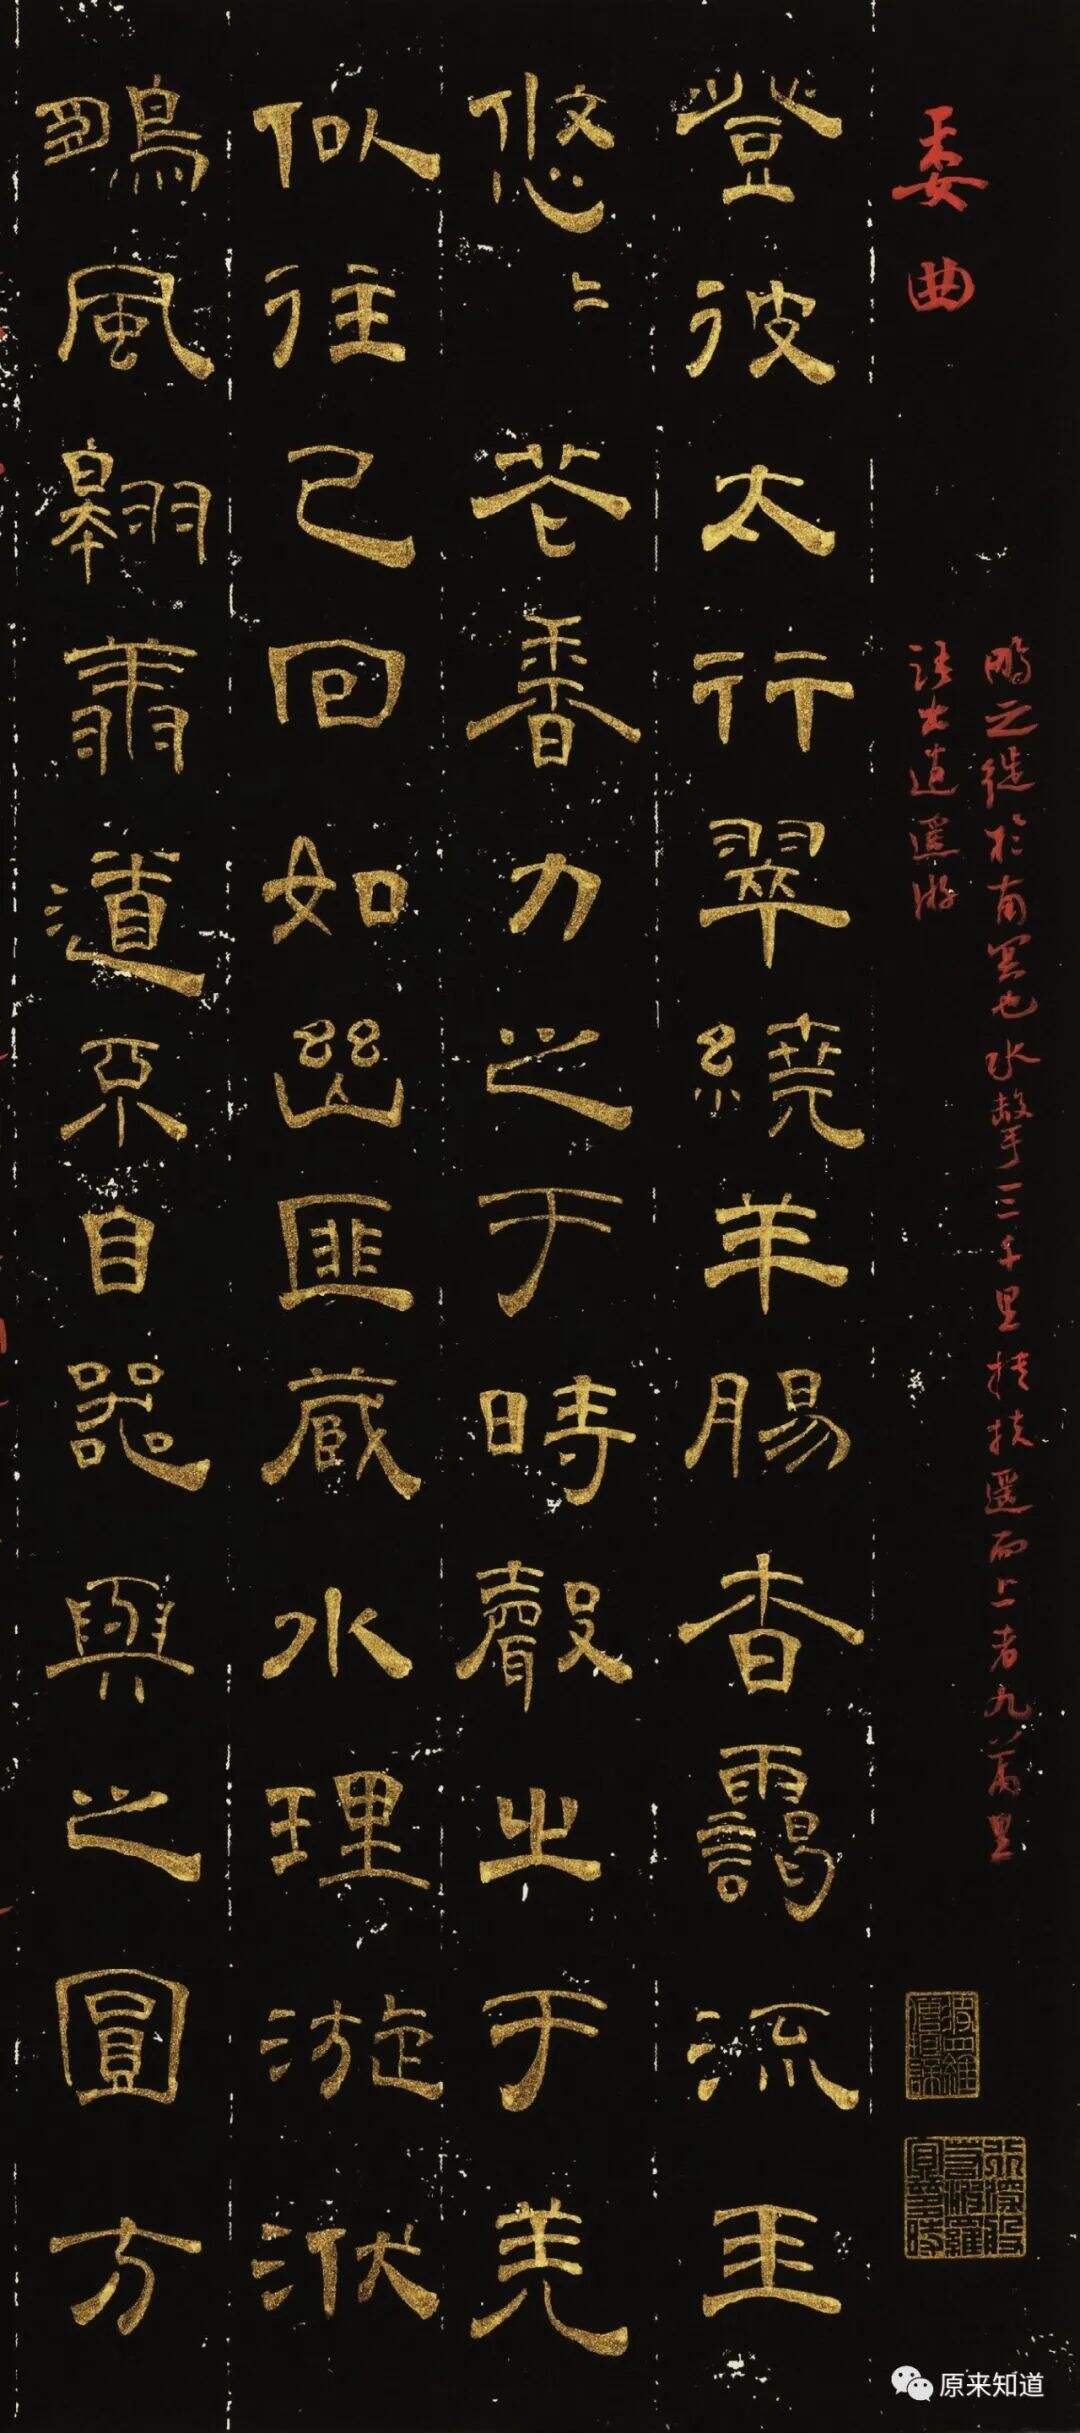 委曲
鵬之徙於南冥也水擊三千里摶扶遙而上者九萬里
語出逍遙游
登彼太行翠繞羊腸杳靄流玉
悠〻花香力之于時聲之于羌
似往已回如幽匪藏水理漩洑
鵬風翱翔道不自器與之圓方
原来知道